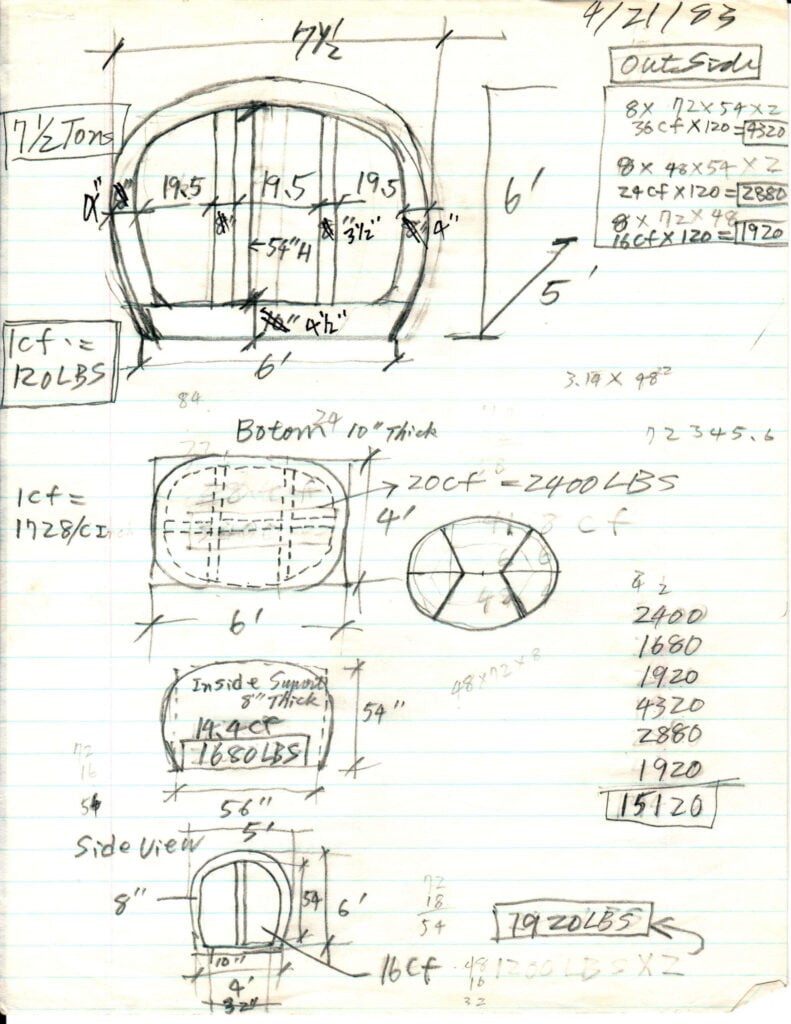 4/21/83
7 1/2
OutSide
7 1/2 Tons
8 x 72 x 54 x 2
36cf x 120 = 4320
8 x 48 x 54 x 2
24cf x 120 = 2880
8 x 72 x 48
16cf x 120 = 1920
19.5 19.5 19.5
4" 3 1/2" 4"
54"H
6'
5'
4 1/2"
1cf =
120LBS
6'
3.14 x 48²
84
24
72345.6
Botom 10" Thick
1cf =
1728/C Inch
20cf = 2400LBS
4'
41.8 cf
6'
48 x 72 x 8
2400
1680
1920
4320
2880
1920
15120
Inside Suport
8" Thick
14.4cf
1680LBS
54"
72
16
54
56"
5'
Side View
8"
54
6'
10"
4'
32"
16cf
72
18
54
1920LBS
1200LBS x 2
48
16
32